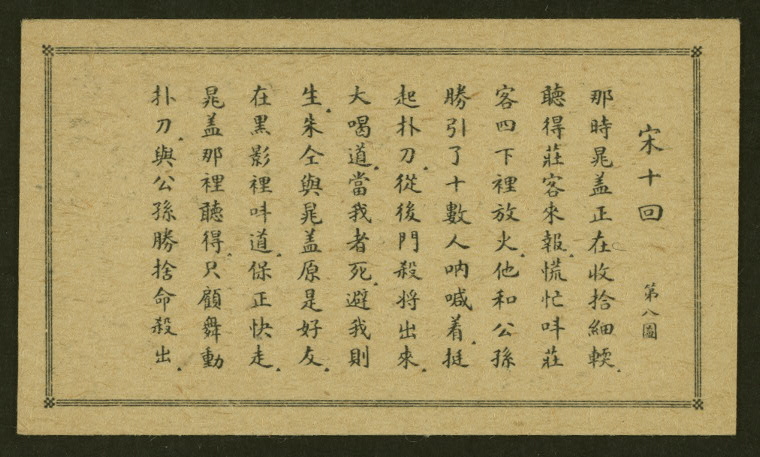 宋十回 第八圖
那時晁盖正在收拾細輭.
聽得莊客來報.慌忙呌莊
客四下裡放火.他和公孫
勝引了十數人吶喊着.挺
起扑刀.從後門殺將出來.
大喝道.當我者死.避我則
生.朱仝與晁盖原是好友.
在黑影裡呌道.保正快走.
晁盖那裡聽得.只顧舞動
扑刀.與公孫勝捨命殺出.